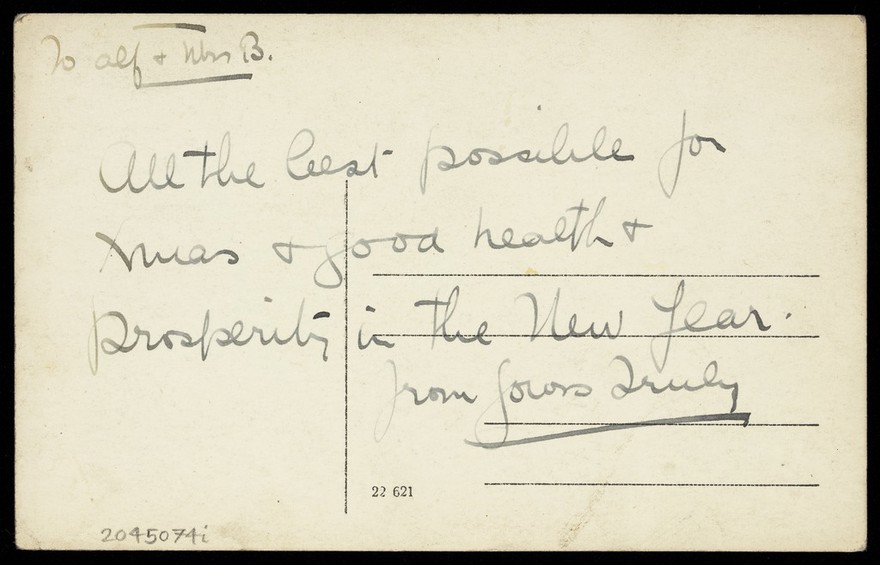 To alf + Mrs B.
All the best possible for
Xmas + good health +
prosperity in the New Year.
from Yours Truly
22 621
2045074i